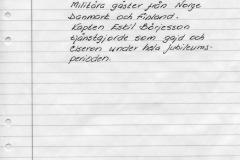 Militära gäster från Norge
Danmark och Finland.
Kapten Eskil Börjesson
tjänstgjorde som gajd och
ciseron under hela jubileums-
perioden.